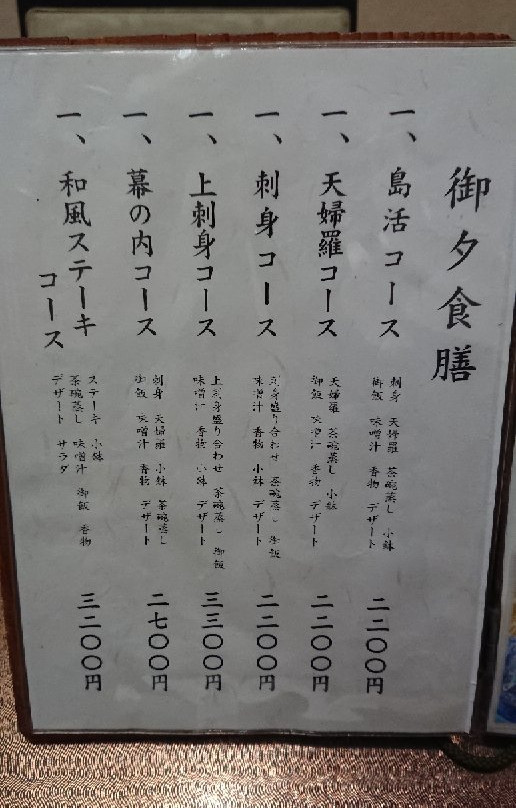 御夕食膳
一、島活コース
刺身 天婦羅 茶碗蒸し 小鉢
御飯 味噌汁 香物 デザート
二二〇〇円
一、天婦羅コース
天婦羅 茶碗蒸し 小鉢
御飯 味噌汁 香物 デザート
二二〇〇円
一、刺身コース
刺身盛り合わせ 茶碗蒸し 御飯
味噌汁 香物 小鉢 デザート
二二〇〇円
一、上刺身コース
上刺身盛り合わせ 茶碗蒸し 御飯
味噌汁 香物 小鉢 デザート
三三〇〇円
一、幕の内コース
刺身 天婦羅 小鉢 茶碗蒸し
御飯 味噌汁 香物 デザート
二七〇〇円
一、和風ステーキ
コース
ステーキ 小鉢
茶碗蒸し 味噌汁 御飯 香物
デザート サラダ
三二〇〇円